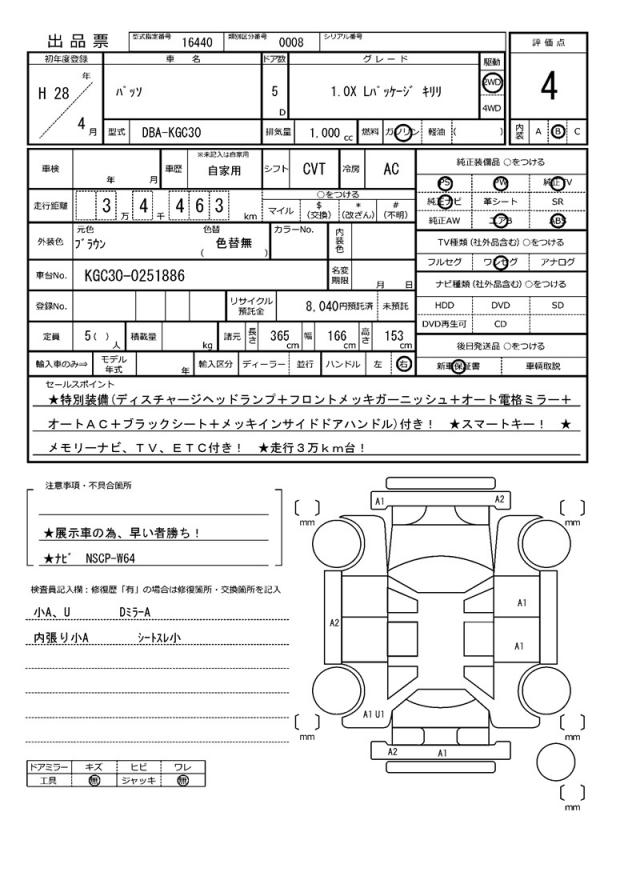 出品票 型式指定番号 16440 類別区分番号 0008 シリアル番号
評価点
4
内装 A B C
初年度登録 車名 ドア数 グレード 駆動
H 28 年 4 月 パッソ 5 D 1.0X Lパッケージ キリリ 2WD 4WD
型式 DBA-KGC30 排気量 1.000 cc 燃料 ガソリン 軽油 ( )
車検 年 月 車歴 ※未記入は自家用 自家用 シフト CVT 冷房 AC
走行距離 3 万 4 千 4 6 3 km ○をつける
マイル $ (交換) * (改ざん) # (不明)
外装色 元色 ブラウン 色替 ( 色替無 ) カラーNo. 内装色
車台No. KGC30-0251886 名変期限 月 日
登録No. リサイクル預託金 8,040円預託済 未預託
定員 5( ) 人 積載量 kg 諸元 長さ 365 cm 幅 166 cm 高さ 153 cm
輸入車のみ⇒ モデル年式 年 輸入区分 ディーラー 並行 ハンドル 左 右
純正装備品 ○をつける
PS PW 純正TV
純正ナビ 革シート SR
純正AW エアB ABS
TV種類(社外品含む)○をつける
フルセグ ワンセグ アナログ
ナビ種類(社外品含む)○をつける
HDD DVD SD
DVD再生可 CD
後日発送品 ○をつける
新車保証書 車輌取説
セールスポイント
★特別装備(ディスチャージヘッドランプ＋フロントメッキガーニッシュ＋オート電格ミラー＋
オートAC＋ブラックシート＋メッキインサイドドアハンドル)付き！ ★スマートキー！ ★
メモリーナビ、TV、ETC付き！ ★走行3万km台！
注意事項・不具合箇所
★展示車の為、早い者勝ち！
★ナビ NSCP-W64
検査員記入欄：修復歴「有」の場合は修復箇所・交換箇所を記入
小A、U DミラーA
内張り小A シートスレ小
ドアミラー キズ ヒビ ワレ
工具 無 ジャッキ 無
A1 A2
[ ] mm [ ] mm
A1
A2
A1
A1 U1
[ ] mm [ ] mm
A2 A1
[ ] mm